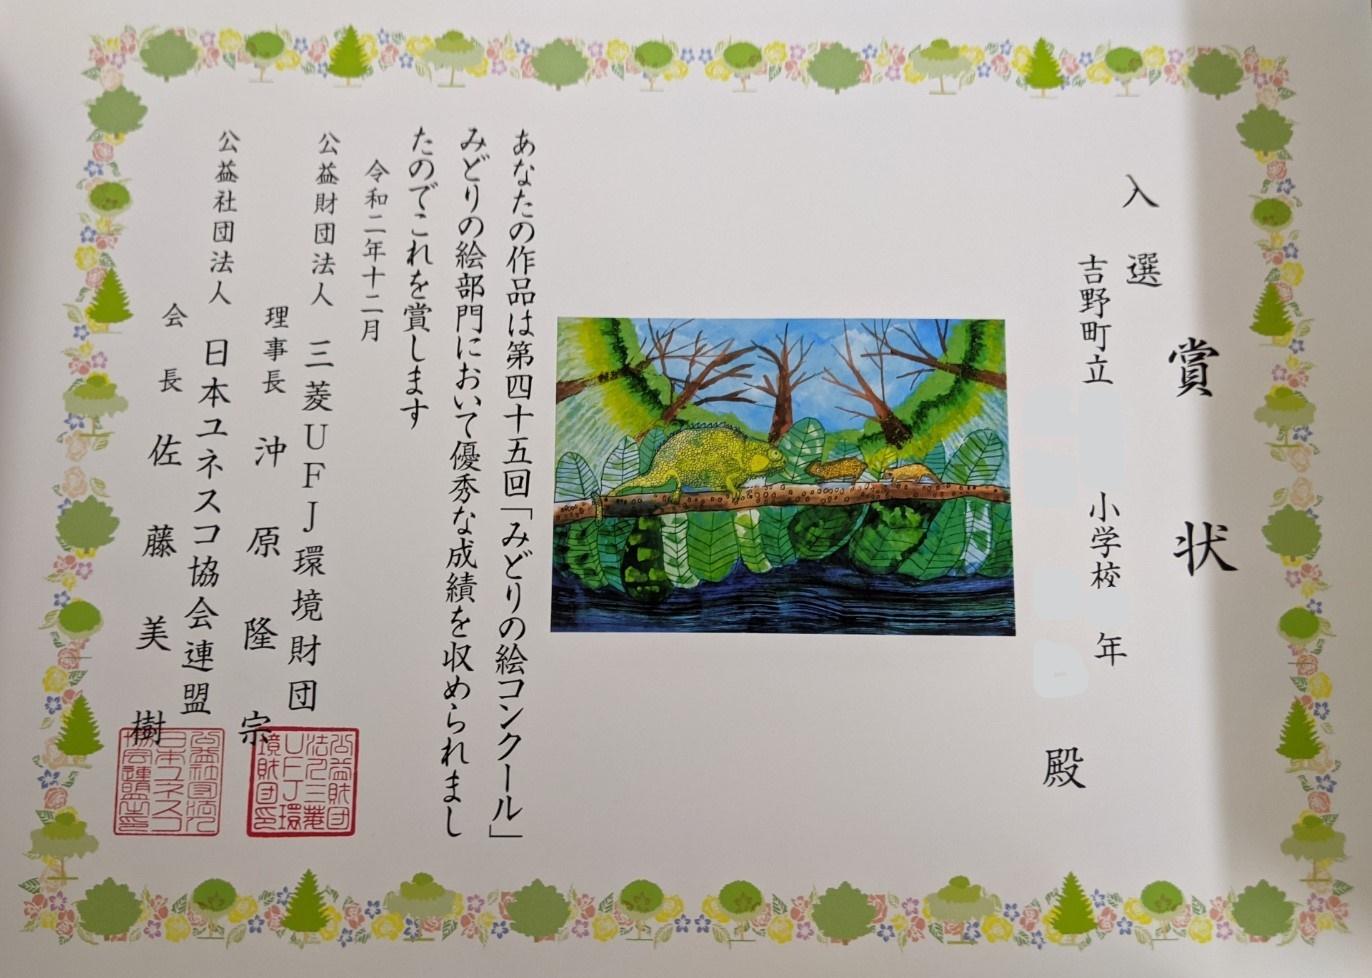 賞状
入選
吉野町立 小学校 年
殿
あなたの作品は第四十五回「みどりの絵コンクール」
みどりの絵部門において優秀な成績を収められまし
たのでこれを賞します
令和二年十二月
公益財団法人 三菱UFJ環境財団
理事長 沖原隆宗
公益社団法人 日本ユネスコ協会連盟
会長 佐藤美樹
公益財団
法人三菱
UFJ環
境財団印
公益社団法人
日本ユネスコ
協会連盟之印